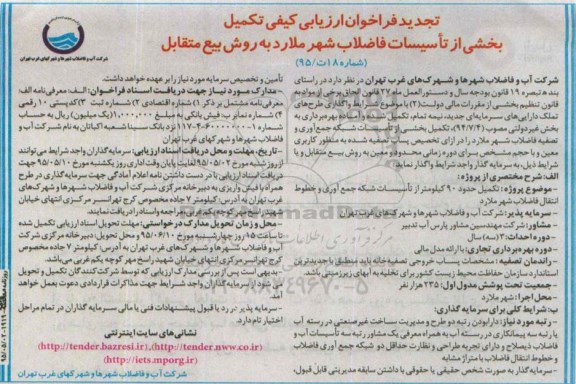 تجدید فراخوان ارزیابی کیفی تکمیل
بخشی از تأسیسات فاضلاب شهر ملارد به روش بیع متقابل
(شماره ۱۸ت/۹۵)
شرکت آب و فاضلاب شهرها و شهرکهای غرب تهران
شرکت آب و فاضلاب شهرها و شهرک‌های غرب تهران در نظر دارد در راستای
بند ه تبصره ۱۹ قانون بودجه سال و دستورالعمل ماده ۲۷ قانون الحاق برخی از مواد به
قانون تنظیم بخشی از مقررات مالی دولت(۲) با موضوع شرایط واگذاری طرح‌های
تملک دارایی‌های سرمایه‌ای جدید، نیمه تمام، تکمیل شده و آماده بهره‌برداری به
بخش غیردولتی مصوب (۹۴/۷/۴)، تکمیل بخشی از تأسیسات شبکه جمع آوری و
تصفیه فاضلاب شهر ملارد را در ازای تخصیص پساب تصفیه شده به منظور کاربری
معین و با حجم مشخص برای دوره زمانی محدود و معین به روش بیع متقابل و با
شرایط ذیل، به سرمایه گذار واجد شرایط واگذار نماید.
الف: شرح مختصری از پروژه:
- موضوع پروژه: تکمیل حدود ۹۰ کیلومتر از تأسیسات شبکه جمع آوری و خطوط
انتقال فاضلاب شهر ملارد
- سرمایه پذیر: شرکت آب و فاضلاب شهرها و شهرک‌های غرب تهران
- مشاور: شرکت مهندسین مشاور پارس آب تدبیر
- دوره احداث: ۳(سه) سال
- دوره بهره برداری تجاری: با ارائه مدل مالی
- راندمان تصفیه: مشخصات پساب خروجی تصفیه‌خانه باید منطبق با جدیدترین
استاندارد سازمان حفاظت محیط زیست کشور برای تخلیه به آبهای زیرزمینی باشد.
- جمعیت تحت پوشش مدول اول: ۲۳۵ هزار نفر
- محل اجرا: شهر ملارد
ب: شرایط کلی برای سرمایه گذاری:
- رتبه مورد نیاز: دارا بودن رتبه دو طرح و مدیریت ساخت غیرصنعتی در رسته آب
یا رتبه سه پیمانکاری در رسته آب به همراه معرفی یک مشاور رتبه سه تأسیسات آب و
فاضلاب ذیصلاح و دارای تجربه طراحی و نظارت حداقل دو شبکه جمع آوری فاضلاب
و خطوط انتقال فاضلاب با متراژ مشابه
- سرمایه گذار به صورت شخص حقیقی یا حقوقی با داشتن سابقه مدیریتی قابل قبول،
تأمین و تخصیص سرمایه مورد نیاز را بر عهده خواهد داشت.
- مدارک مورد نیاز جهت دریافت اسناد فراخوان: الف- معرفی‌نامه الف:
معرفی‌نامه مشتمل بر ذکر ۱) شماره اقتصادی ۲) شماره ثبت ۳) کدپستی ۱۰ رقمی
۴) شماره نمابر ب: فیش بانکی به مبلغ ۱٫۰۰۰٫۰۰۰ (یک میلیون) ریال به حساب
نزد بانک سینا شعبه اکباتان به نام شرکت آب و
فاضلاب شهرها و شهرکهای غرب تهران
- تاریخ، مهلت و محل دریافت اسناد ارزیابی: سرمایه گذاران واجد شرایط می توانند
از روز شنبه مورخ ۹۵/۰۵/۰۲ لغایت پایان وقت اداری روز یکشنبه مورخ ۹۵/۰۵/۱۰ جهت
دریافت اسناد ارزیابی با در دست داشتن نامه اعلام آمادگی جهت سرمایه گذاری در طرح
همراه با فیش واریزی به دبیرخانه مرکزی شرکت آب و فاضلاب شهرها و شهرک‌های
غرب تهران به آدرس: کیلومتر ۷ جاده مخصوص کرج تهرانسر مرکزی انتهای خیابان
شهید راسخ مهر کوچه یکم غربی مراجعه و اسناد را دریافت نمایند.
- محل و زمان تحویل مدارک درخواستی: مهلت تحویل اسناد ارزیابی تکمیل شده
تا ساعت ۱۵ روز چهارشنبه مورخ ۹۵/۰۶/۱۰ و محل تحویل، دبیرخانه مرکزی شرکت
آب و فاضلاب شهرها و شهرکهای غرب تهران به آدرس کیلومتر ۷ جاده مخصوص
کرج تهرانسر مرکزی انتهای خیابان شهید راسخ مهر کوچه یکم غربی می باشد.
- بدیهی است پس از بررسی مدارک ارزیابی که توسط شرکت کنندگان تکمیل و تحویل
می شود از سرمایه گذاران واجد شرایط جهت مذاکرات قراردادی دعوت بعمل خواهد
آمد.
- سرمایه پذیر در رد یا قبول پیشنهادات فنی یا مالی سرمایه گذاران در تمام مراحل
اختیار تام دارد.
نشانی‌های سایت اینترنتی
(http://tender.bazresi.ir)،(http://tender.nww.co.ir)
(http://iets.mporg.ir)
شرکت آب و فاضلاب شهرها و شهرکهای غرب تهران